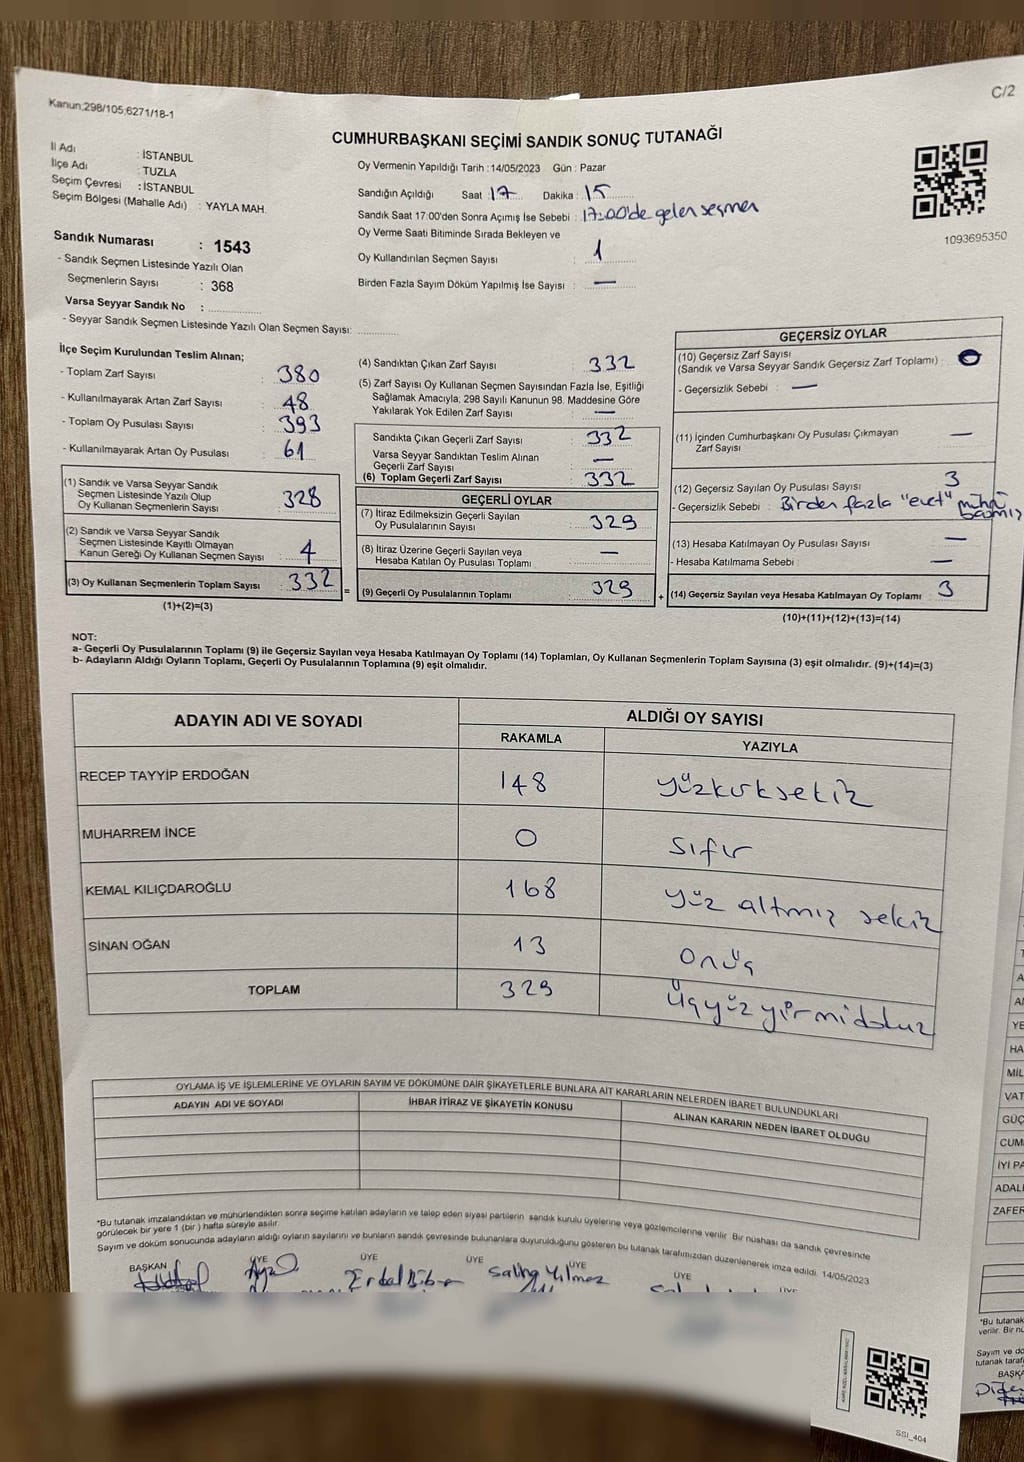 Kanun;298/105;6271/18-1
C/2
CUMHURBAŞKANI SEÇİMİ SANDIK SONUÇ TUTANAĞI
İl Adı : İSTANBUL
İlçe Adı : TUZLA
Seçim Çevresi : İSTANBUL
Seçim Bölgesi (Mahalle Adı) : YAYLA MAH.
Sandık Numarası : 1543
- Sandık Seçmen Listesinde Yazılı Olan
Seçmenlerin Sayısı : 368
Varsa Seyyar Sandık No :
- Seyyar Sandık Seçmen Listesinde Yazılı Olan Seçmen Sayısı:
Oy Vermenin Yapıldığı Tarih :14/05/2023 Gün : Pazar
Sandığın Açıldığı Saat : 17 Dakika : 15
Sandık Saat 17:00'den Sonra Açımış İse Sebebi : 17:00'de gelen seçmen
Oy Verme Saati Bitiminde Sırada Bekleyen ve
Oy Kullandırılan Seçmen Sayısı : 1
Birden Fazla Sayım Döküm Yapılmış İse Sayısı : —
1093695350
İlçe Seçim Kurulundan Teslim Alınan;
- Toplam Zarf Sayısı : 380
- Kullanılmayarak Artan Zarf Sayısı : 48
- Toplam Oy Pusulası Sayısı : 393
- Kullanılmayarak Artan Oy Pusulası : 61
(1) Sandık ve Varsa Seyyar Sandık
Seçmen Listesinde Yazılı Olup
Oy Kullanan Seçmenlerin Sayısı : 328
(2) Sandık ve Varsa Seyyar Sandık
Seçmen Listesinde Kayıtlı Olmayan
Kanun Gereği Oy Kullanan Seçmen Sayısı : 4
(3) Oy Kullanan Seçmenlerin Toplam Sayısı : 332
(1)+(2)=(3)
=
(4) Sandıktan Çıkan Zarf Sayısı : 332
(5) Zarf Sayısı Oy Kullanan Seçmen Sayısından Fazla İse, Eşitliği
Sağlamak Amacıyla, 298 Sayılı Kanunun 98. Maddesine Göre
Yakılarak Yok Edilen Zarf Sayısı : —
Sandıkta Çıkan Geçerli Zarf Sayısı : 332
Varsa Seyyar Sandıktan Teslim Alınan
Geçerli Zarf Sayısı : —
(6) Toplam Geçerli Zarf Sayısı : 332
GEÇERLİ OYLAR
(7) İtiraz Edilmeksizin Geçerli Sayılan
Oy Pusulalarının Sayısı : 329
(8) İtiraz Üzerine Geçerli Sayılan veya
Hesaba Katılan Oy Pusulası Toplamı : —
(9) Geçerli Oy Pusulalarının Toplamı : 329
+
GEÇERSİZ OYLAR
(10) Geçersiz Zarf Sayısı
(Sandık ve Varsa Seyyar Sandık Geçersiz Zarf Toplamı) : 0
- Geçersizlik Sebebi : —
(11) İçinden Cumhurbaşkanı Oy Pusulası Çıkmayan
Zarf Sayısı : —
(12) Geçersiz Sayılan Oy Pusulası Sayısı : 3
- Geçersizlik Sebebi : Birden fazla "evet" mührü
basmış
(13) Hesaba Katılmayan Oy Pusulası Sayısı : —
- Hesaba Katılmama Sebebi : —
(14) Geçersiz Sayılan veya Hesaba Katılmayan Oy Toplamı : 3
(10)+(11)+(12)+(13)=(14)
NOT:
a- Geçerli Oy Pusulalarının Toplamı (9) ile Geçersiz Sayılan veya Hesaba Katılmayan Oy Toplamı (14) Toplamları, Oy Kullanan Seçmenlerin Toplam Sayısına (3) eşit olmalıdır. (9)+(14)=(3)
b- Adayların Aldığı Oyların Toplamı, Geçerli Oy Pusulalarının Toplamına (9) eşit olmalıdır.
ADAYIN ADI VE SOYADI ALDIĞI OY SAYISI
RAKAMLA YAZIYLA
RECEP TAYYİP ERDOĞAN 148 yüzkırksekiz
MUHARREM İNCE 0 sıfır
KEMAL KILIÇDAROĞLU 168 yüz altmış sekiz
SİNAN OĞAN 13 onüç
TOPLAM 329 üçyüzyirmidokuz
OYLAMA İŞ VE İŞLEMLERİNE VE OYLARIN SAYIM VE DÖKÜMÜNE DAİR ŞİKAYETLERLE BUNLARA AİT KARARLARIN NELERDEN İBARET BULUNDUKLARI
ADAYIN ADI VE SOYADI İHBAR İTİRAZ VE ŞİKAYETİN KONUSU ALINAN KARARIN NEDEN İBARET OLDUĞU
*Bu tutanak imzalandıktan ve mühürlendikten sonra seçime katılan adayların ve talep eden siyasi partilerin sandık kurulu üyelerine veya gözlemcilerine verilir. Bir nüshası da sandık çevresinde
görülecek bir yere 1 (bir) hafta süreyle asılır.
Sayım ve döküm sonucunda adayların aldığı oyların sayılarını ve bunların sandık çevresinde bulunanlara duyurulduğunu gösteren bu tutanak tarafımızdan düzenlenerek imza edildi. 14/05/2023
BAŞKAN ÜYE ÜYE ÜYE ÜYE ÜYE ÜYE
Yılmaz
SSI_404
YE
HA
MİL
VAT
GÜÇ
CUM
İYİ PA
ADAL
ZAFER
*Bu tutanak
verilir. Bir nü
Sayım ve dö
tutanak taraf
BAŞKA